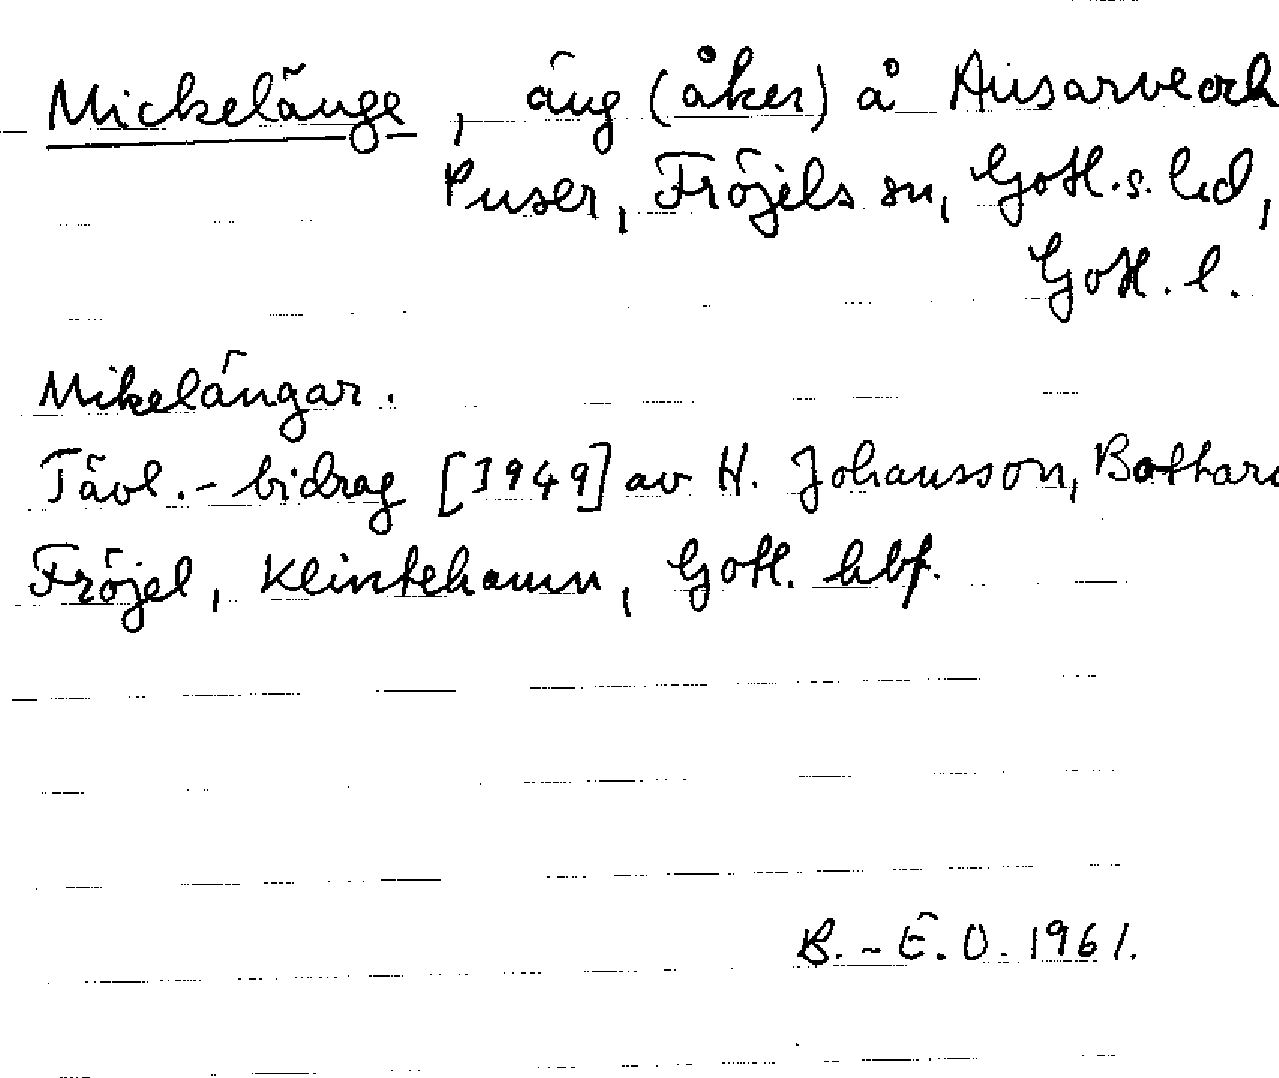 Mickelänge, äng (åker) å Ansarve och
Puser, Fröjels sn, Gotl. s. hd,
Gotl. l.
Mikelängar.
Tävl.-bidrag [1949] av H. Johansson, Bothar
Fröjel, Klintehamn, Gotl. hbf.
B.-E.O. 1961.